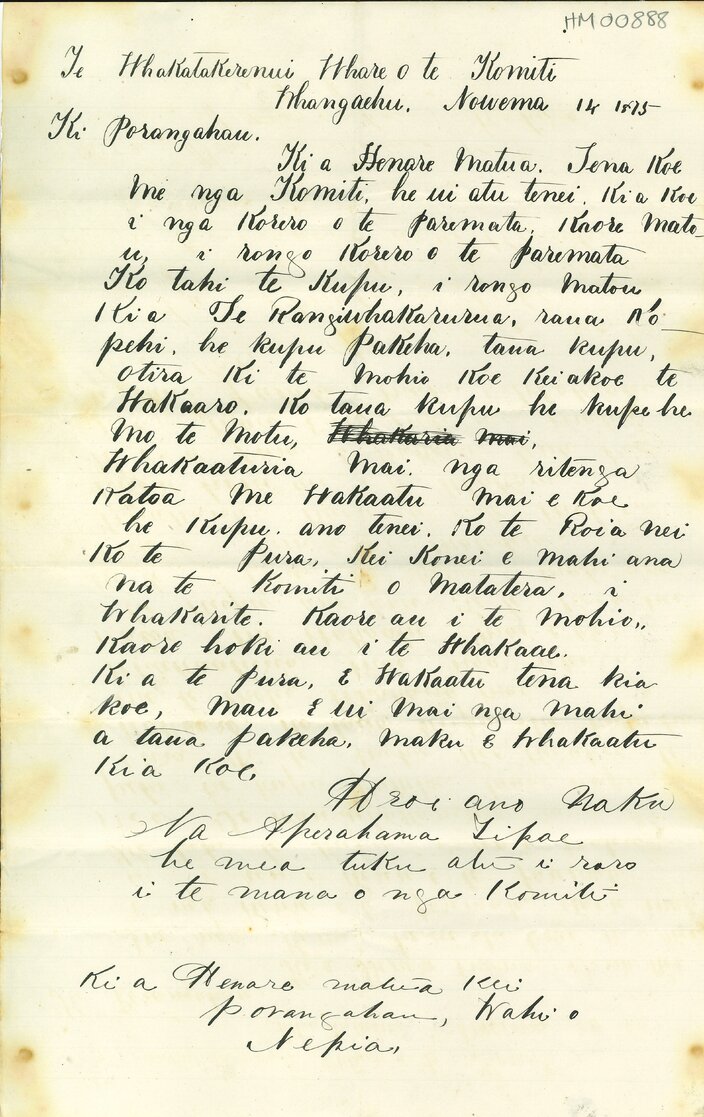 HM00888
Te Whakatakerenui Whare o te Komiti
Whangaehu. Nowema 14 1875
Ki Porangahau.
Ki a Henare Matua. Tena Koe
me nga Komiti, he ui atu tenei. Ki a Koe
i nga Korero o te paremata. Kaore Mato-
u, i rongo Korero o te paremata
Ko tahi te Kupu, i rongo Matou
Kia Te Rangiwhakarurua, raua Ko
pehi. he kupu Pakeha. tana kupu,
otira Ki te Mohio Koe Keiakoe te
Wakaaro. Ko taua kupu he kupu he
Mo te Motu, Whakaria mai,
Whakaaturia Mai. nga ritenga
Katoa Me Wakaatu mai e Koe
he Kupu. ano tenei. Ko te Roia nei
Ko te Pura, Kei Konei e mahi ana
na te Komiti o Matatera, i
Whakarite. Kaore au i te Mohio,,
Kaore hoki au i te Whakaae.
Ki a te Pura, E Wakaatu tena kia
koe, Mau E ui Mai nga mahi
a taua pakeha. Maku E Whakaatu
Kia Koe
Heoi ano Naku
Na Aperahama Tipae
he mea tuku atu i raro
i te mana o nga Komiti
Ki a Henare matua Kei
porangahau, Wahi o
Nepia,